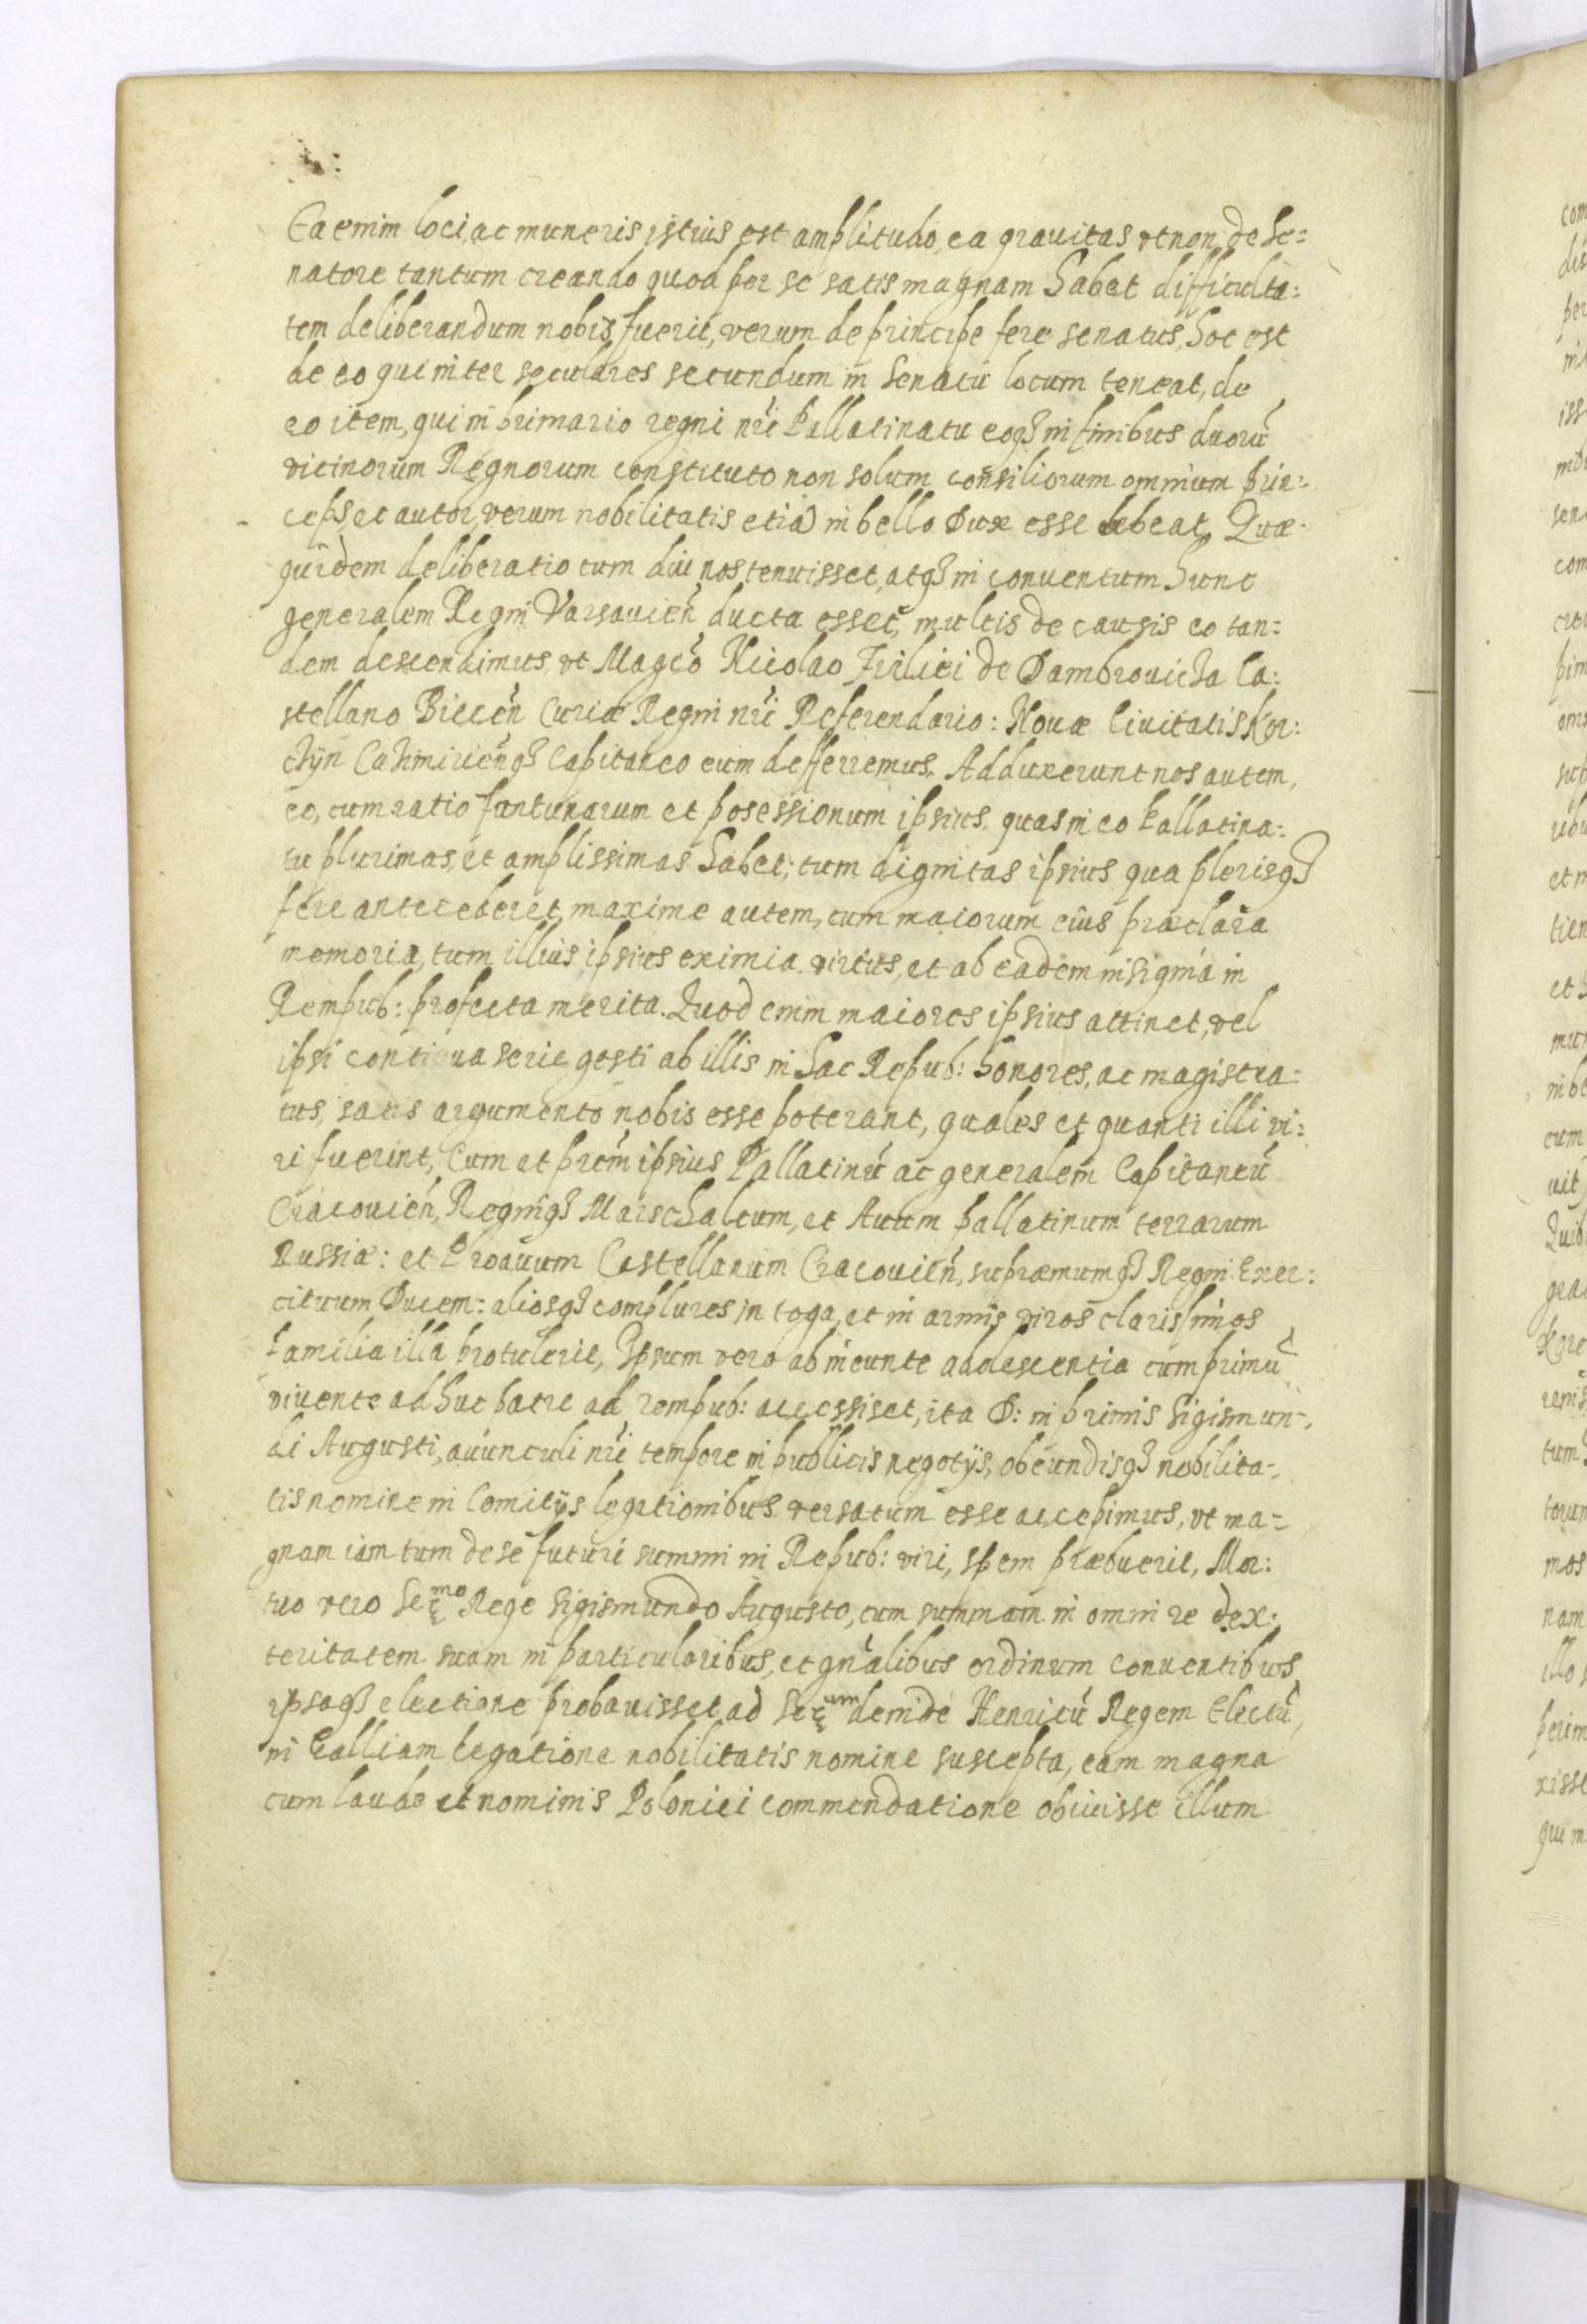 Ea enim loci, ac muneris istius est amplitudo, ea grauitas vt non de Se=
natore tantum creando quod per se satis magnam habet difficulta:
tem deliberandum nobis fuerit, verum de principe fere senatus, hoc est
de eo qui inter seculares secundum in Senatu locum teneat, de
eo item, qui in primario regni nrĩ Pallatinatu eoq₃ in finibus duorũ
vicinorum Regnorum constituto non solum consiliorum omnium prin:
ceps et autor, verum nobilitatis etiã in bello Dux esse debeat. Quæ
quidem deliberatio cum diu nos tenuisset, atq₃ in conuentum hunc
generalem Regni Varsauieñ ducta esset, multis de causis eo tan=
dem descendimus, vt Magcõ Nicolao Firlici de Dambrouicha Ca:
stellano Bieceñ Curiæ Regni nrĩ Referendario: Nouæ Ciuitatis Kor:
chÿn Cazimirieñq₃ Capitaneo eum defferremus. Adduxerunt nos autem,
eo, cum ratio fortunarum et posessionum ipsius, quas in eo Pallatina:
tu plurimas, et amplissimas habet; tum dignitas ipsius qua plerisq₃
fere antecederet, maxime autem, cum maiorum eius præclara
memoria, tum illius ipsius eximia virtus, et ab eadem insignia in
Rempub: profecta merita. Quod enim maiores ipsius attinet, vel
ipsi continua serie gesti ab illis in hac Repub: honores, ac magistra=
tus, satis argumento nobis esse poterant, quales et quanti illi vi:
ri fuerint, Cum et prẽm ipsius Pallatinũ ac generalem Capitaneũ
Cracouieñ, Regniq₃ Marschalcum, et Auum pallatinum terrarum
Russiæ: et Proauum Castellanum Cracouieñ, supræmumq₃ Regni Exer:
cituum Ducem: aliosq₃ complures in toga, et in armis viros clarissimos
familia illa protulerit, Ipsum vero ab ineunte adolescentia cum primũ
viuente adhuc patre ad rempub: accessiset, ita D: in primis Sigismun=
di Augusti, auunculi nrĩ tempore in publicis negotÿs, obeundisq₃ nobilita=
tis nomine in Comitÿs legationibus versatum esse accepimus, vt ma=
gnam iam tum de se futuri summi in Repub: viri, spem præbuerit, Mor:
tuo vero Seᵐᵒ Rege Sigismundo Augusto, cum summam in omni re dex:
teritatem suam in particularibus, et gnãlibus ordinum conuentibus
ipsaq₃ electione probauisset ad Seᵘᵐ deinde Henricũ Regem Electũ,
in Galliam legatione nobilitatis nomine suscepta, eam magna
cum laude et nominis Polonici commendatione obiuisse illum